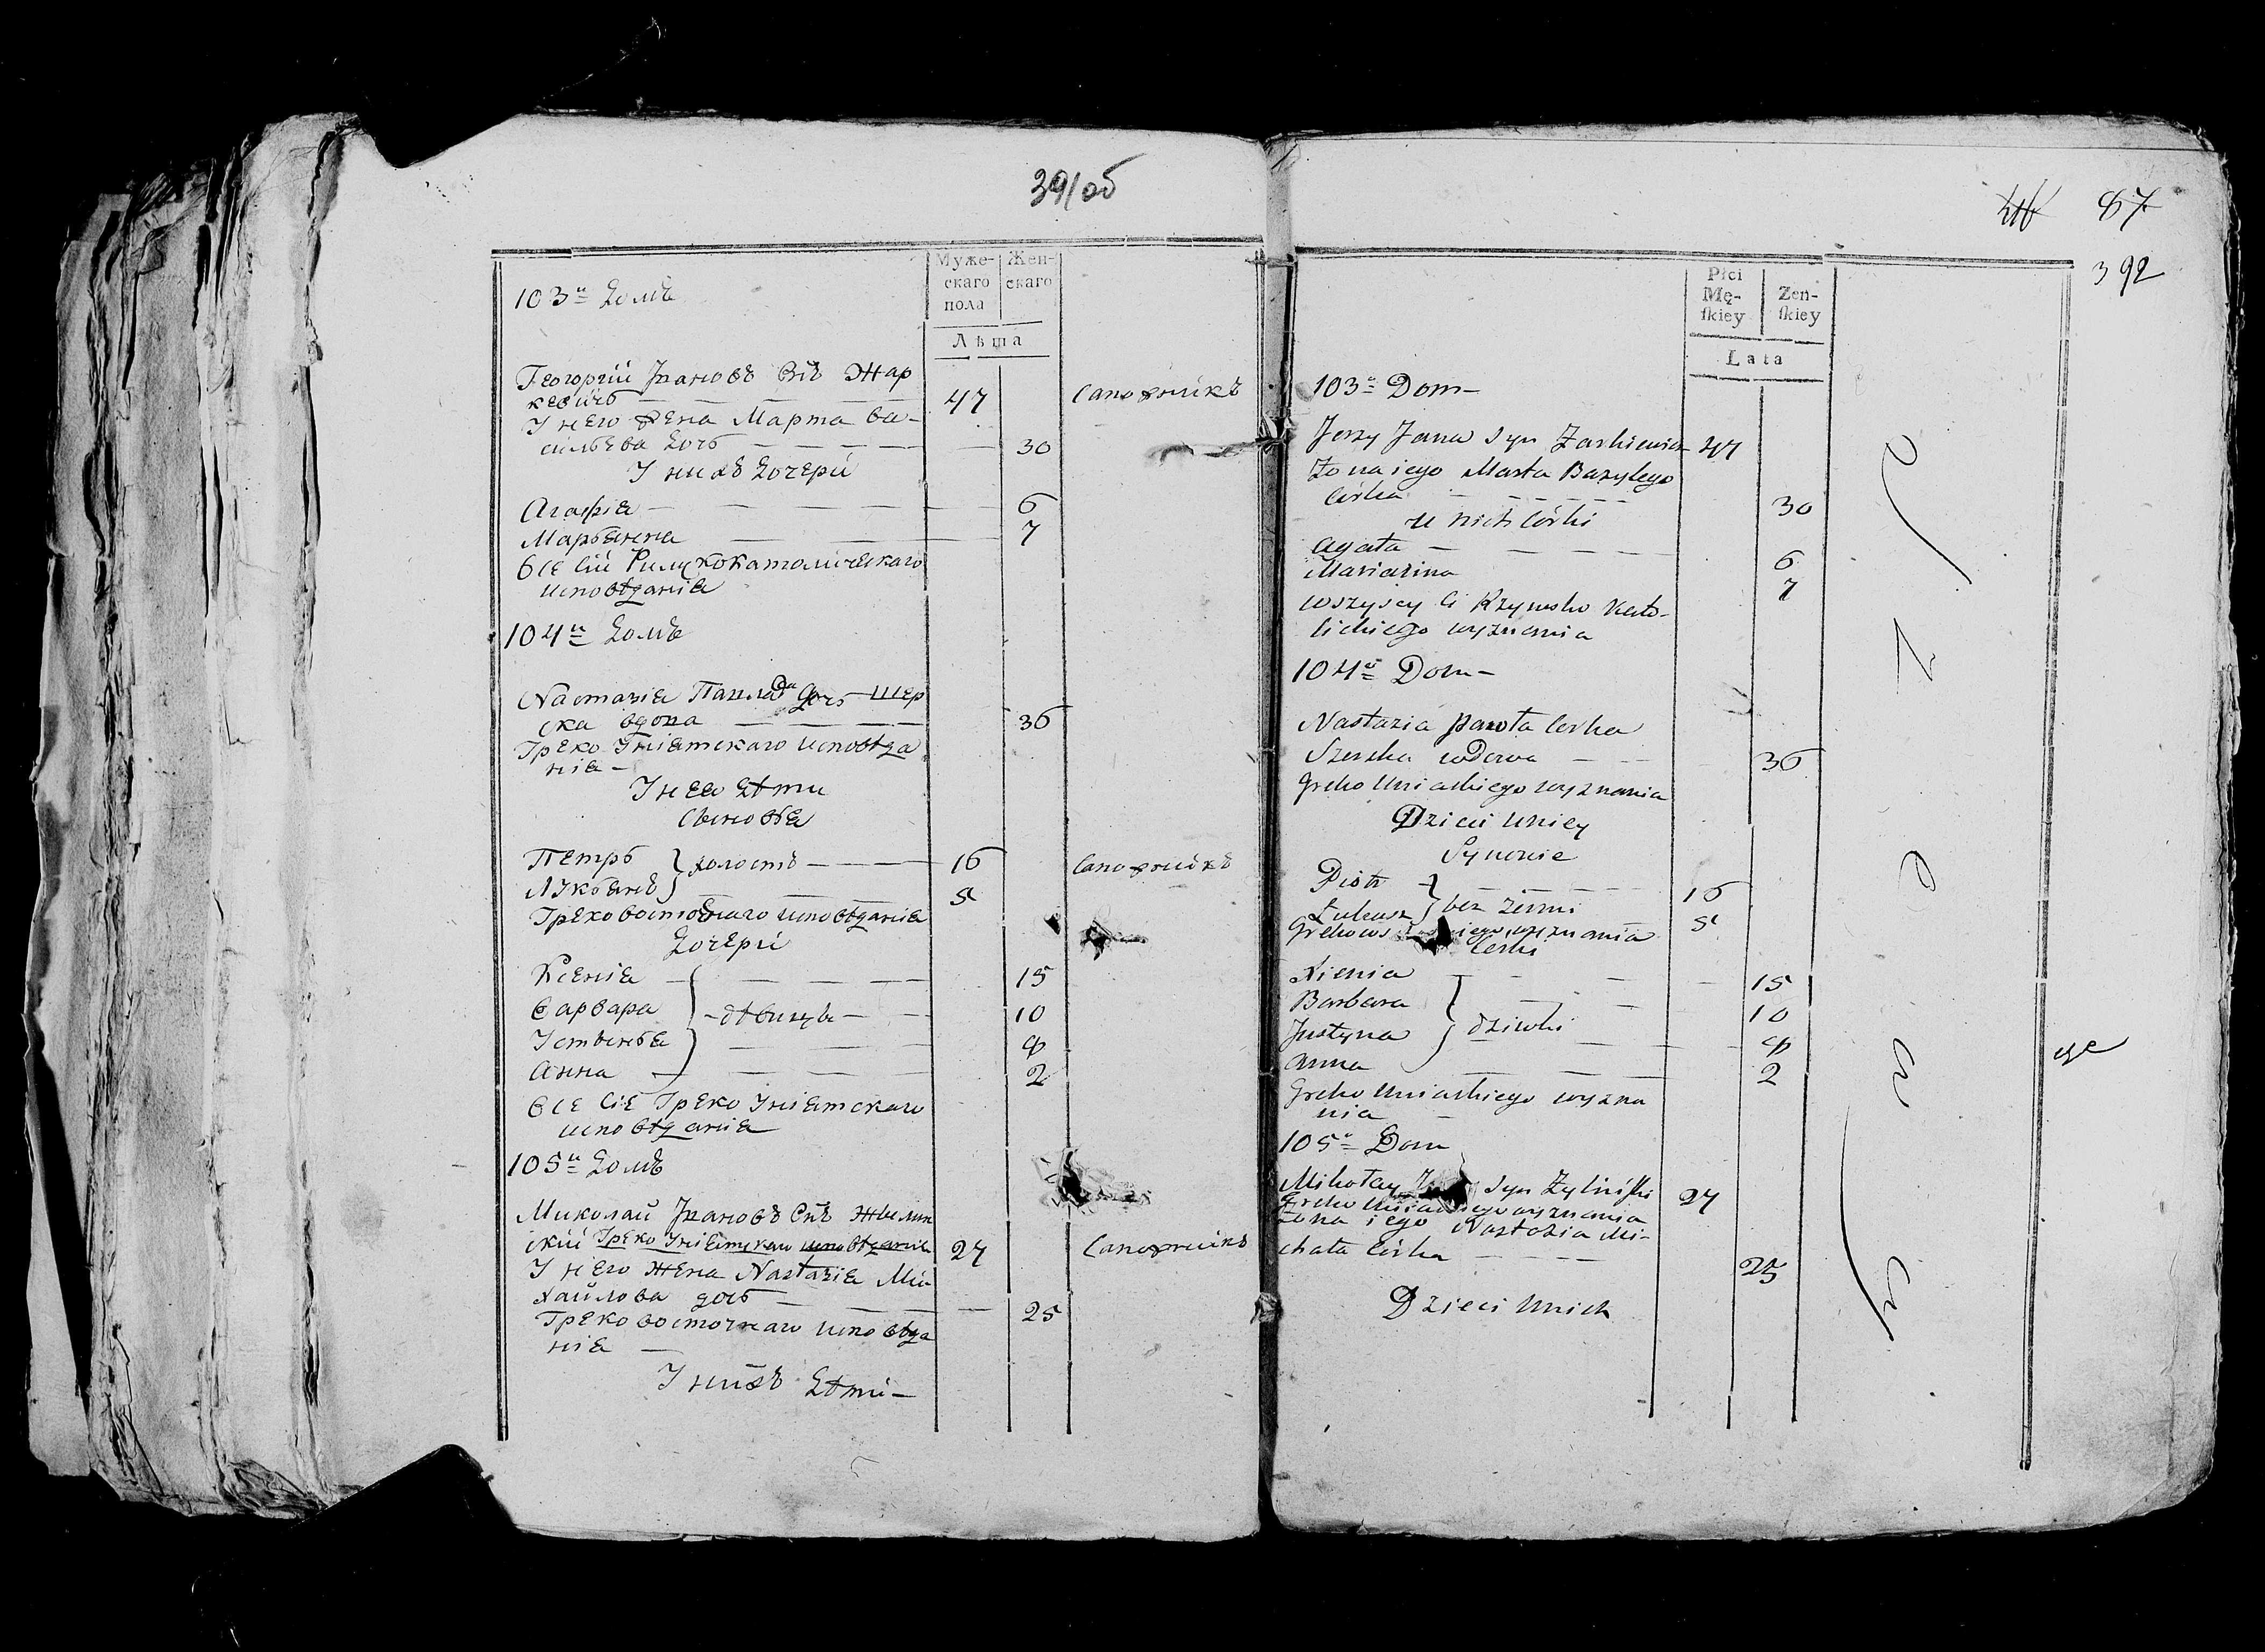 39/об
103й Домъ
Муже-
скаго
пола
Жен-
скаго
Лѣта
Георгій Ивановъ Снъ Жар
кевичъ 47 Сапожникъ
У него Жена Марта Ва-
сильева Дочь 30
У нихъ Дочери
Агафія 6
Марьянна 7
Все сіи Римскокатолическаго
исповѣданія
104й Домъ
Настазія Павлова дочь Шер
ска вдова 36
Греко Уніятскаго исповѣда
нія
У нее Дѣти
Сыновья
Петръ } холостъ 16 Сапожникъ
Лукьянъ 5
Греко восточнаго исповѣданія
Дочери
Ксенія 15
Варвара } дѣвицы 10
Устынья 9
Анна 2
Все сіе Греко Уніятскаго
исповѣданія
105й Домъ
Миколай Ивановъ Снъ Жылин
скій Греко Уніятскаго исповѣданія 27 Сапожникъ
У него Жена Настазія Ми-
хайлова дочь 25
Греко восточнаго исповѣда
нія
У нихъ Дѣти
87
392
Płci
Mę-
skiey
Zeń-
skiey
Lata
103й Dom
Jerzy Jana Syn Zarkiewicz 47
Zona iego Marta Bazylego
Córka 30
U nich Córki
Agata 6
Marianna 7
Wszyscy Ci Rzymsko Kato-
lickiego wyznania
104й Dom
Nastazia Pawła Corka
Szerska wdowa 36
Greko Uniackiego wyznania
Dzieci Uniey
Synowie
Piotr 16
Łukasz } bez żenni 5
Greko wyznania
Corki
Xienia 15
Barbara 10
Justyna } dziwki 9
Anna 2
Greko Uniackiego wyzna
nia
105й Dom
Mikołay Syn Zyliński 27
Greko wyznania
Zona iego Nastazia Mi-
chała Córka 25
Dzieci Unich